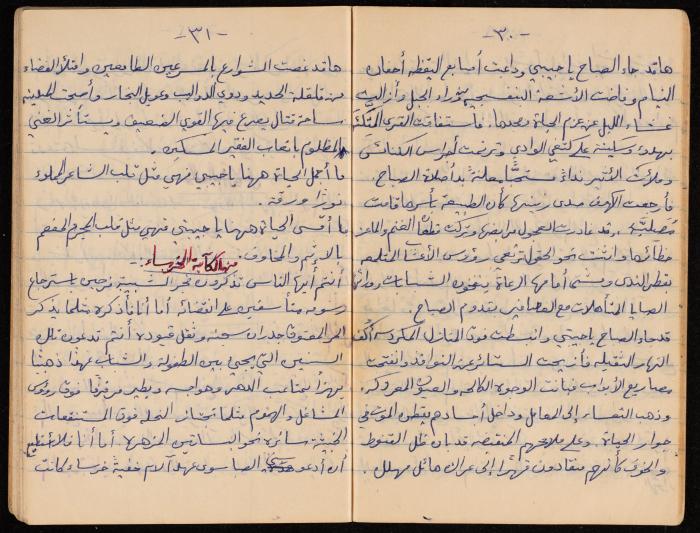 -٣٠-
ها قد جاء الصباح يا حبيبتي وداعبت أصابع اليقظة أجفان
النيام وفاضت الأشعة البنفسجية من وراء الجبل وأزالت
غشاء الليل عن عزم الحياة ومجدها. فاستفاقت القرى المتكئة
بهدوء وسكينة على كتفي الوادي وترنمت أجراس الكنائس
وملأت الأثير نداءً مستحبًا معلنة بدأ صلاة الصباح.
فأرجعت الكهوف صدى رنينها كأن الطبيعة بأسرها قامت
مصلية. قد غادرت العجول مرابضها وتركت قطعان الغنم والماعز
حظائرها وانثنت نحو الحقول ترتعي رؤوس الأعشاب المتلمعة
بقطر الندى ومشى أمامها الرعاة ينفخون الشبابات ووراءها
الصبايا المتأهلات مع العصافير بقدوم الصباح.
قد جاء الصباح يا حبيبتي وانبسطت فوق المنازل المكردسة أكف
النهار الثقيلة فأزيحت الستائر عن النوافذ وانفتحت
مصاريع الأبواب فبانت الوجوه الكالحة والعيون المعروكة.
وذهب التعساء إلى المعامل وداخل أجسادهم يقطن الموت في
جوار الحياة. وعلى ملامحهم المنقبضة قد بان ظل القنوط
والخوف كأنهم منقادون قهرًا إلى عراك هائل مهلك.
-٣١-
ها قد غصت الشوارع بالمسرعين الطامعين وامتلأ الفضاء
من قلقلة الحديد ودوي الدواليب وعويل البخار وأصبحت المدينة
ساحة قتال يصرع فيها القوي الضعيف ويستأثر الغني
المظلوم باتعاب الفقير المسكين.
ما أجمل الحياة ههنا يا حبيبتي فهي مثل قلب الشاعر المملوء
نورًا ورقة.
ما أقسى الحياة ههنا يا حبيبتي فهي مثل قلب المجرم المفعم
بالإثم والمخاوف.
من الكآبة الخرساء
أنتم أيها الناس تذكرون فجر الشبيبة فرحين باسترجاع
رسومه متأسفين على انقضائه أما أنا فأذكره مثلما يذكر
الحر المعتوق جدران سجنه وثقل قيوده. أنتم تدعون تلك
السنين التي تجيء بين الطفولة والشباب عهدًا ذهبيًا
يهزأ بمتاعب الدهر وهواجسه ويطير مرفرفًا فوق رؤوس
المشاغل والهموم مثلما تجتاز النحلة فوق المستنقعات
الخبيثة سائرة نحو البساتين المزهرة. أما أنا فلا أستطيع
أن أدعو الصبا سوى عهد آلام خفية خرساء كانت